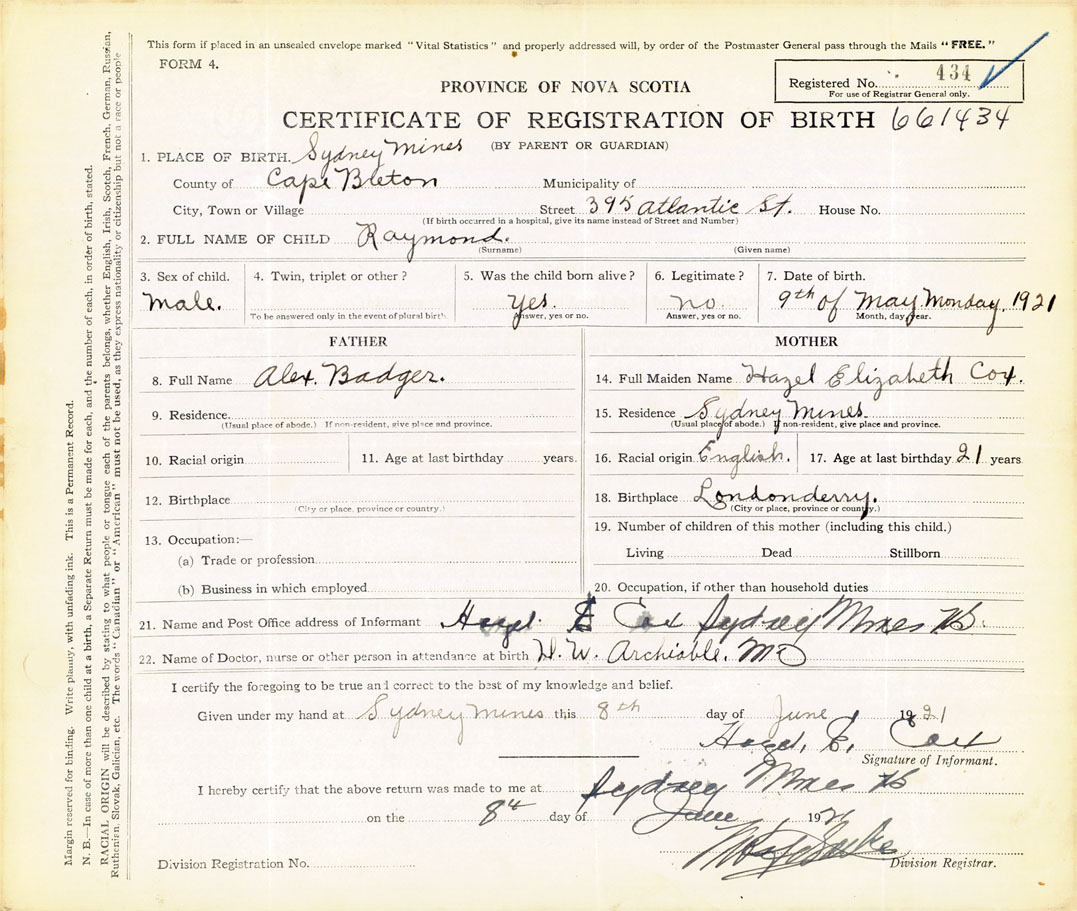 This form if placed in an unsealed envelope marked "Vital Statistics" and properly addressed will, by order of the Postmaster General pass through the Mails "FREE."
FORM 4.
Registered No. 434
For use of Registrar General only.
PROVINCE OF NOVA SCOTIA
CERTIFICATE OF REGISTRATION OF BIRTH 661434
(BY PARENT OR GUARDIAN)
1. PLACE OF BIRTH. Sydney Mines
County of Cape Breton Municipality of
City, Town or Village Street 395 Atlantic St. House No.
(If birth occurred in a hospital, give its name instead of Street and Number)
2. FULL NAME OF CHILD Raymond.
(Surname) (Given name)
3. Sex of child. 4. Twin, triplet or other? 5. Was the child born alive? 6. Legitimate? 7. Date of birth.
male. yes. no. 9th of May Monday. 1921
To be answered only in the event of plural birth. Answer, yes or no. Answer, yes or no. Month, day, year.
FATHER
8. Full Name Alex. Badger.
9. Residence.
(Usual place of abode.) If non-resident, give place and province.
10. Racial origin 11. Age at last birthday years.
12. Birthplace
(City or place, province or country.)
13. Occupation:—
(a) Trade or profession
(b) Business in which employed
MOTHER
14. Full Maiden Name Hazel Elizabeth Cox.
15. Residence Sydney Mines.
(Usual place of abode.) If non-resident, give place and province.
16. Racial origin English. 17. Age at last birthday 21 years
18. Birthplace Londonderry.
(City or place, province or country.)
19. Number of children of this mother (including this child.)
Living Dead Stillborn
20. Occupation, if other than household duties
21. Name and Post Office address of Informant Hazel E Cox Sydney Mines NS.
22. Name of Doctor, nurse or other person in attendance at birth W. MD
I certify the foregoing to be true and correct to the best of my knowledge and belief.
Given under my hand at Sydney Mines this 8th day of June 1921
Hazel, E, Cox
Signature of Informant.
I hereby certify that the above return was made to me at Sydney Mines NS
on the 8th day of June 192
Division Registration No. Division Registrar.
Margin reserved for binding. Write plainly, with unfading ink. This is a Permanent Record.
N. B.—In case of more than one child at a birth, a Separate Return must be made for each, and the number of each, in order of birth, stated.
RACIAL ORIGIN will be described by stating to what people or tongue each of the parents belongs, whether English, Irish, Scotch, French, German, Russian,
Ruthenian, Slovak, Galician, etc. The words "Canadian" or "American" must not be used, as they express nationality or citizenship but not a race or people